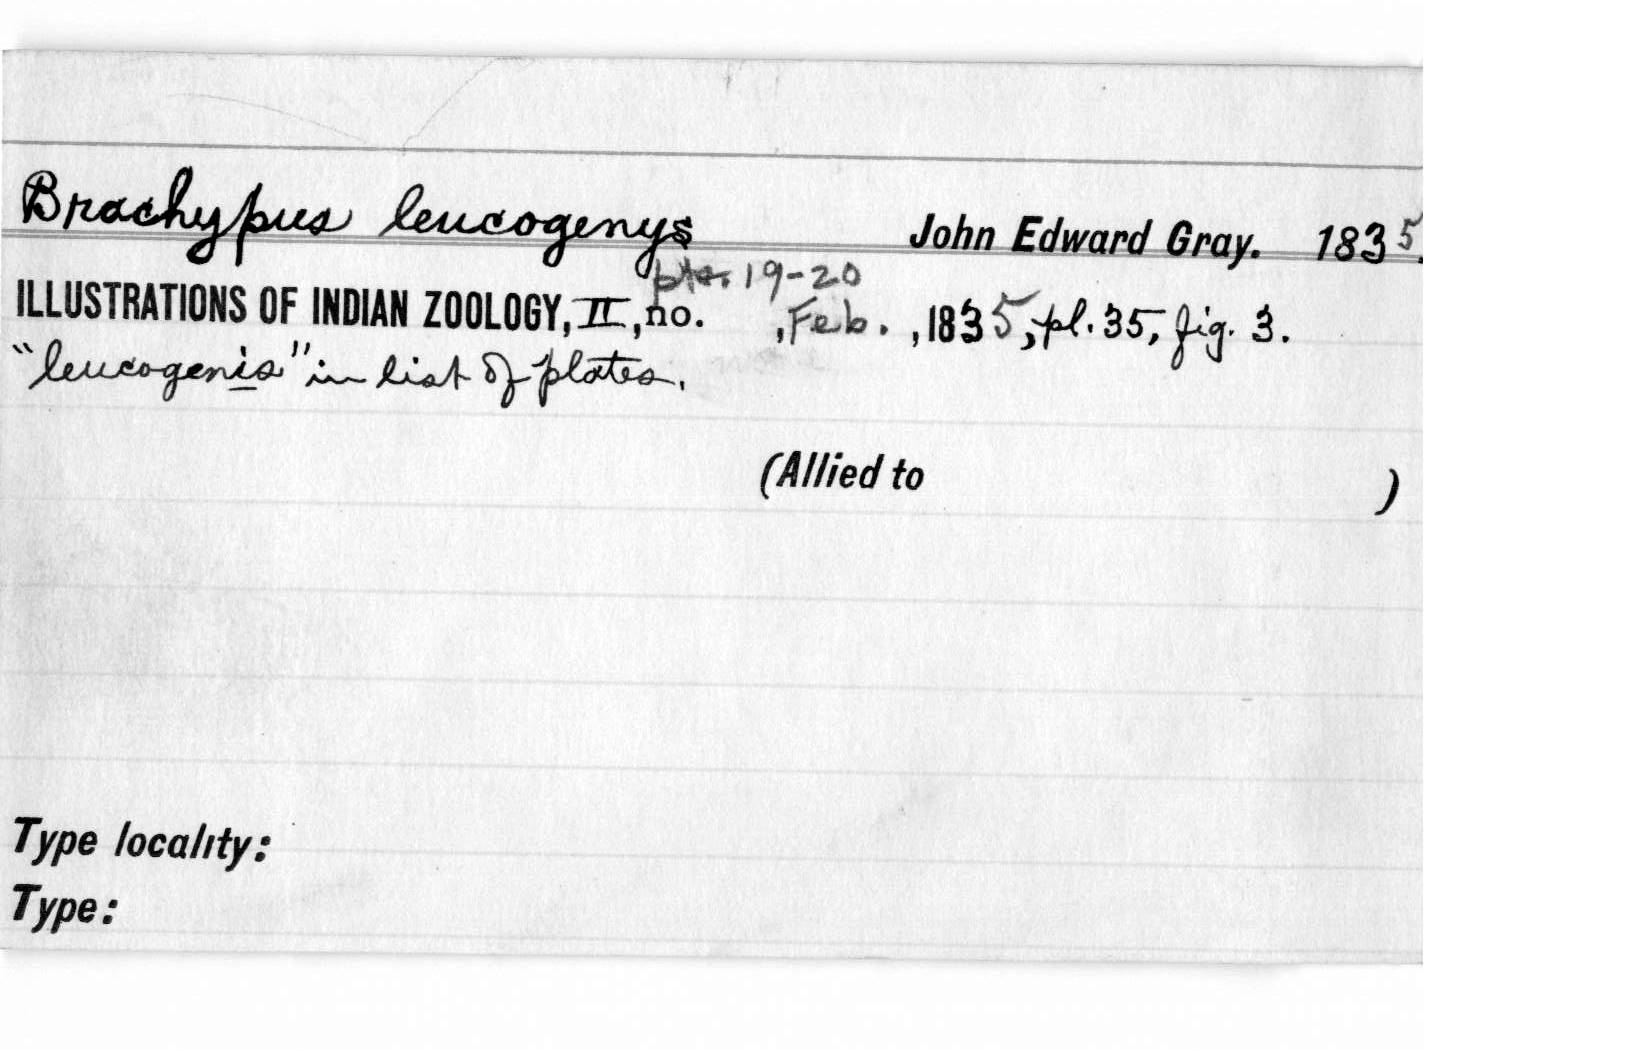 Brachypus leucogenys John Edward Gray. 1835.
pts. 19-20
ILLUSTRATIONS OF INDIAN ZOOLOGY, II, no. , Feb. , 1835, pl. 35, fig. 3.
"leucogenis" in list of plates.
(Allied to )
Type locality:
Type: